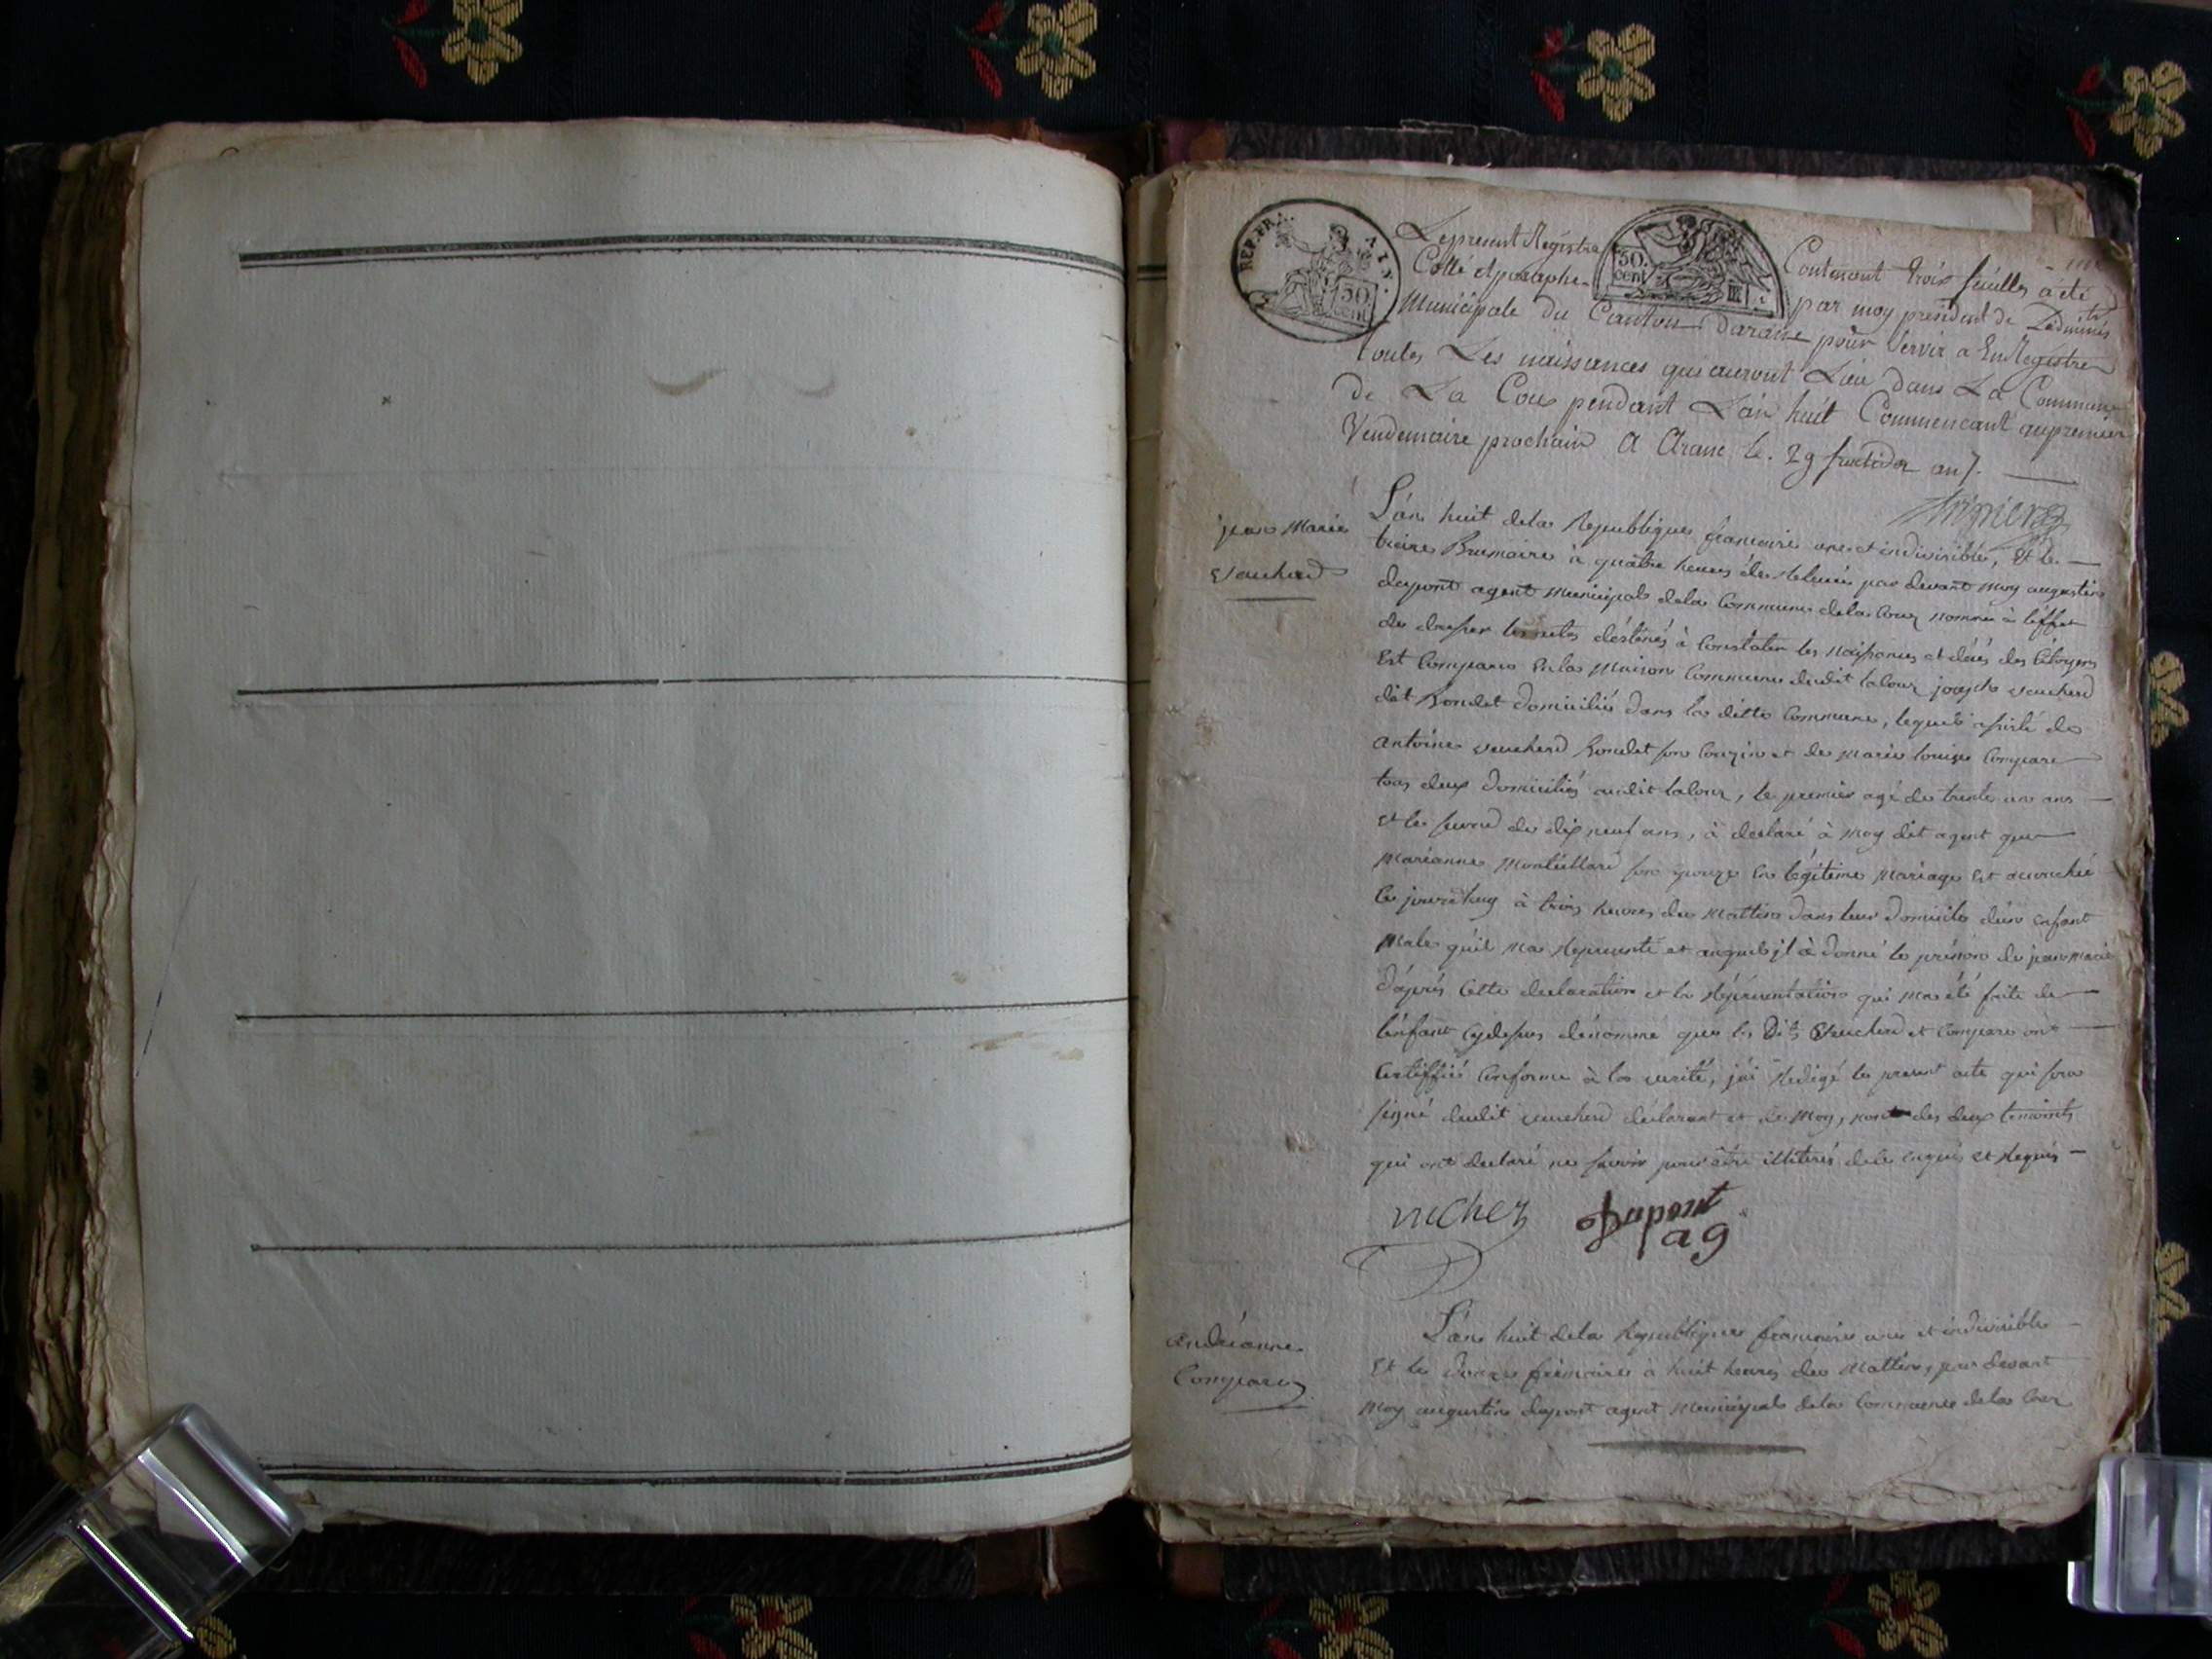 REP. FRA.
50.
cent
50.
cent
Le present Registre Contenant trois feuilles a été
Cotté et paraphe par moy president de L'adminis
Municipale du Canton Darane pour servir a EnRegistrer
toutes Les naissances qui auront Lieu dans La Commune
de La Coux pendant L'an huit Commencant aupremier
Vendemaire prochain A Arane le 29 fructidor an 7.
jean Marie
vaucherd
L'an huit dela Republique francaise une et indivisible, et le
treize Brumaire à quatre heures de relevée par devant moy augustin
dupont agent municipal dela Commune dela Coux nommé à l'effet
de dresser les actes déstinés à Constater les naissances et décés des Citoyens
Est Comparu En la Maison Commune dudit lacoux joseph vaucherd
dit domicilié dans la ditte Commune, lequel assisté de
antoine vaucherd son Couzin et de marie louise Compare
tous deux domiciliés audit lacoux, le premier agé de trente un ans
et la seconde de dix neuf ans, à declaré à moy dit agent que
Marianne Montillard son Epouze En légitime Mariage Est accouchée
Ce jourdhuy à trois heures du Mattin dans leur domicile d'un Enfant
Male qu'il ma Représenté et auquel jl à donné le prénom de jean marie
d'aprés Cette declaration et la Réprésentation qui ma été faite de
l'enfant Cydessus dénommé que les Dits vaucherd et Compare ont
Certiffié Conforme à la verité, j'ai Rédigé le present acte qui sera
signé dudit vaucherd déclarant et de Moy, non des deux temoints
qui ont declaré ne savoir pour être illiterés de ce enquis et Requis
vucher Dupont
ag
andréanne
Compare
L'an huit dela Republique francaise une et indivisible
et le frimaire à huit heures du Mattin, par devant
moy augustin dupont agent Municipal dela Commune dela Coux